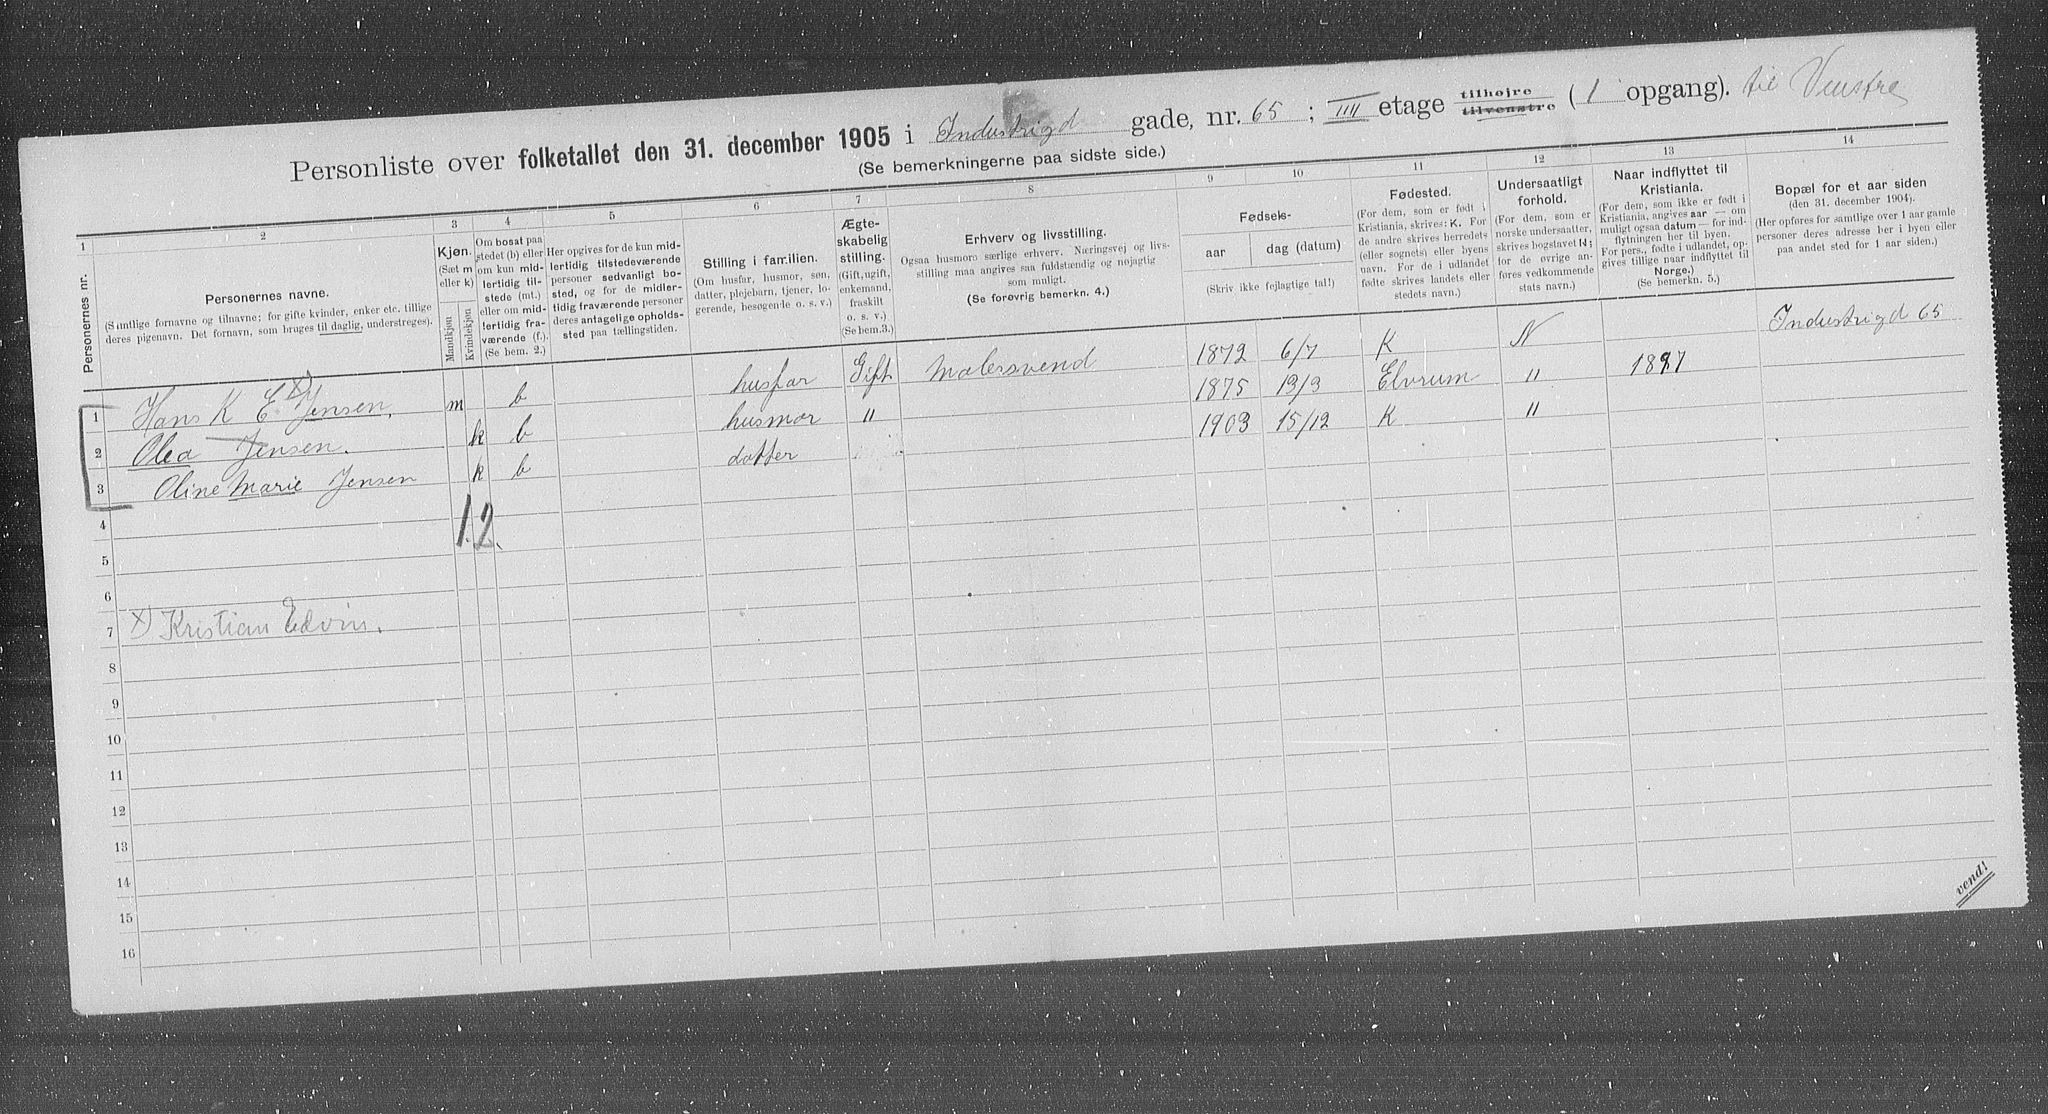 Personliste over folketallet den 31. december 1905 i Industrigd gade, nr. 65 ; IIII etage tilhøjre tilvenstre ( 1 opgang). til Venstre
(Se bemerkningerne paa sidste side.)
1 2 3 4 5 6 7 8 9 10 11 12 13 14
Personernes nr.
Personernes navne.
(Samtlige fornavne og tilnavne; for gifte kvinder, enker etc. tillige
deres pigenavn. Det fornavn, som bruges til daglig, understreges).
Kjøn.
(Sæt m
eller k)
Mandkjøn
Kvindekjøn
Om bosat paa
stedet (b) eller
om kun mid-
lertidig til-
stede (mt.)
eller om mid-
lertidig fra-
værende (f.)
(Se bem. 2.)
Her opgives for de kun mid-
lertidig tilstedeværende
personer sedvanligt bo-
sted, og for de midler-
tidig fraværende personer
deres antagelige opholds-
sted paa tællingstiden.
Stilling i familien.
(Om husfar, husmor, søn,
datter, plejebarn, tjener, lo-
gerende, besøgende o. s. v.)
Ægte-
skabelig
stilling.
(Gift, ugift,
enkemand,
fraskilt
o. s. v.)
(Se bem. 3.)
Erhverv og livsstilling.
Ogsaa husmors særlige erhverv. Næringsvej og livs-
stilling maa angives saa fuldstændig og nøjagtig
som muligt.
(Se forøvrig bemerkn. 4.)
Fødsels-
aar dag (datum)
(Skriv ikke fejlagtige tal!)
Fødested.
(For dem, som er født i
Kristiania, skrives: K. For
de andre skrives herredets
(eller sognets) eller byens
navn. For de i udlandet
fødte skrives landets eller
stedets navn.)
Undersaatligt
forhold.
(For dem, som er
norske undersaatter,
skrives bogstavet N;
for de øvrige an-
føres vedkommende
stats navn.)
Naar indflyttet til
Kristiania.
(For dem, som ikke er født i
Kristiania, angives aar — om
muligt ogsaa datum — for ind-
flytningen her til byen.
For pers., fødte i udlandet, op-
gives tillige naar indflyttet til
Norge.)
(Se bemerkn. 5.)
Bopæl for et aar siden
(den 31. december 1904).
(Her opføres for samtlige over 1 aar gamle
personer deres adresse her i byen eller
paa andet sted for 1 aar siden.)
1 Hans K E x) Jensen, m b husfar Gift Malersvend 1872 6/7 K N Industrigd 65
2 Olea Jensen. k b husmor " 1875 13/3 Elvrum " 1897
3 Oline Marie Jensen k b datter 1903 15/12 K "
4 1. 2.
5
6
7 x) Kristian Edvin.
8
9
10
11
12
13
14
15
16
vend!